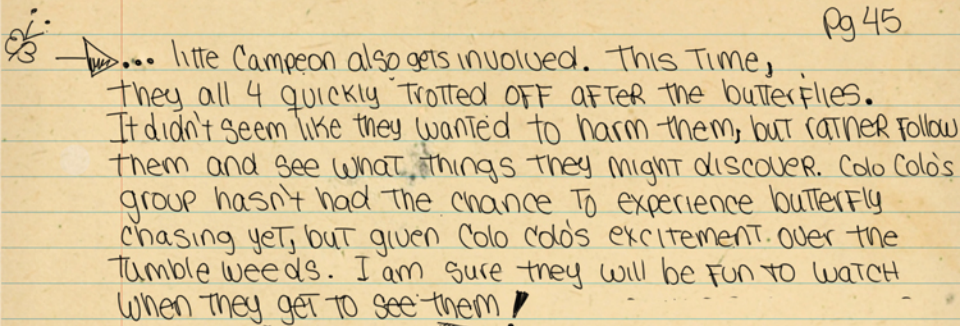 Pg 45
... litte Campeon also gets involved. This Time,
they all 4 quickly Trotted OFF AFTER the butterflies.
It didn't seem like they wanted to harm them, but rather Follow
them and see what things they might discover. Colo Colo's
group hasn't had the chance To experience butterfly
chasing yet, but given Colo Colo's excitement over the
Tumble weeds. I am sure they will be Fun to watch
when they get to see them!